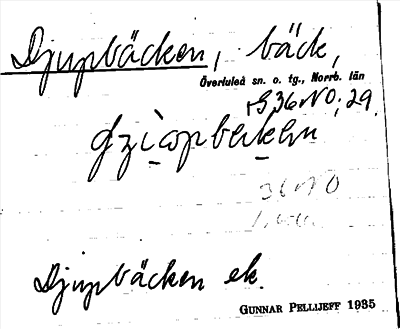 Djupbäcken, bäck,
Överluleå sn. o. tg., Norrb. län
36 NO; 29.
36 NO
Djupbäcken ek.
GUNNAR PELLIJEFF 1935